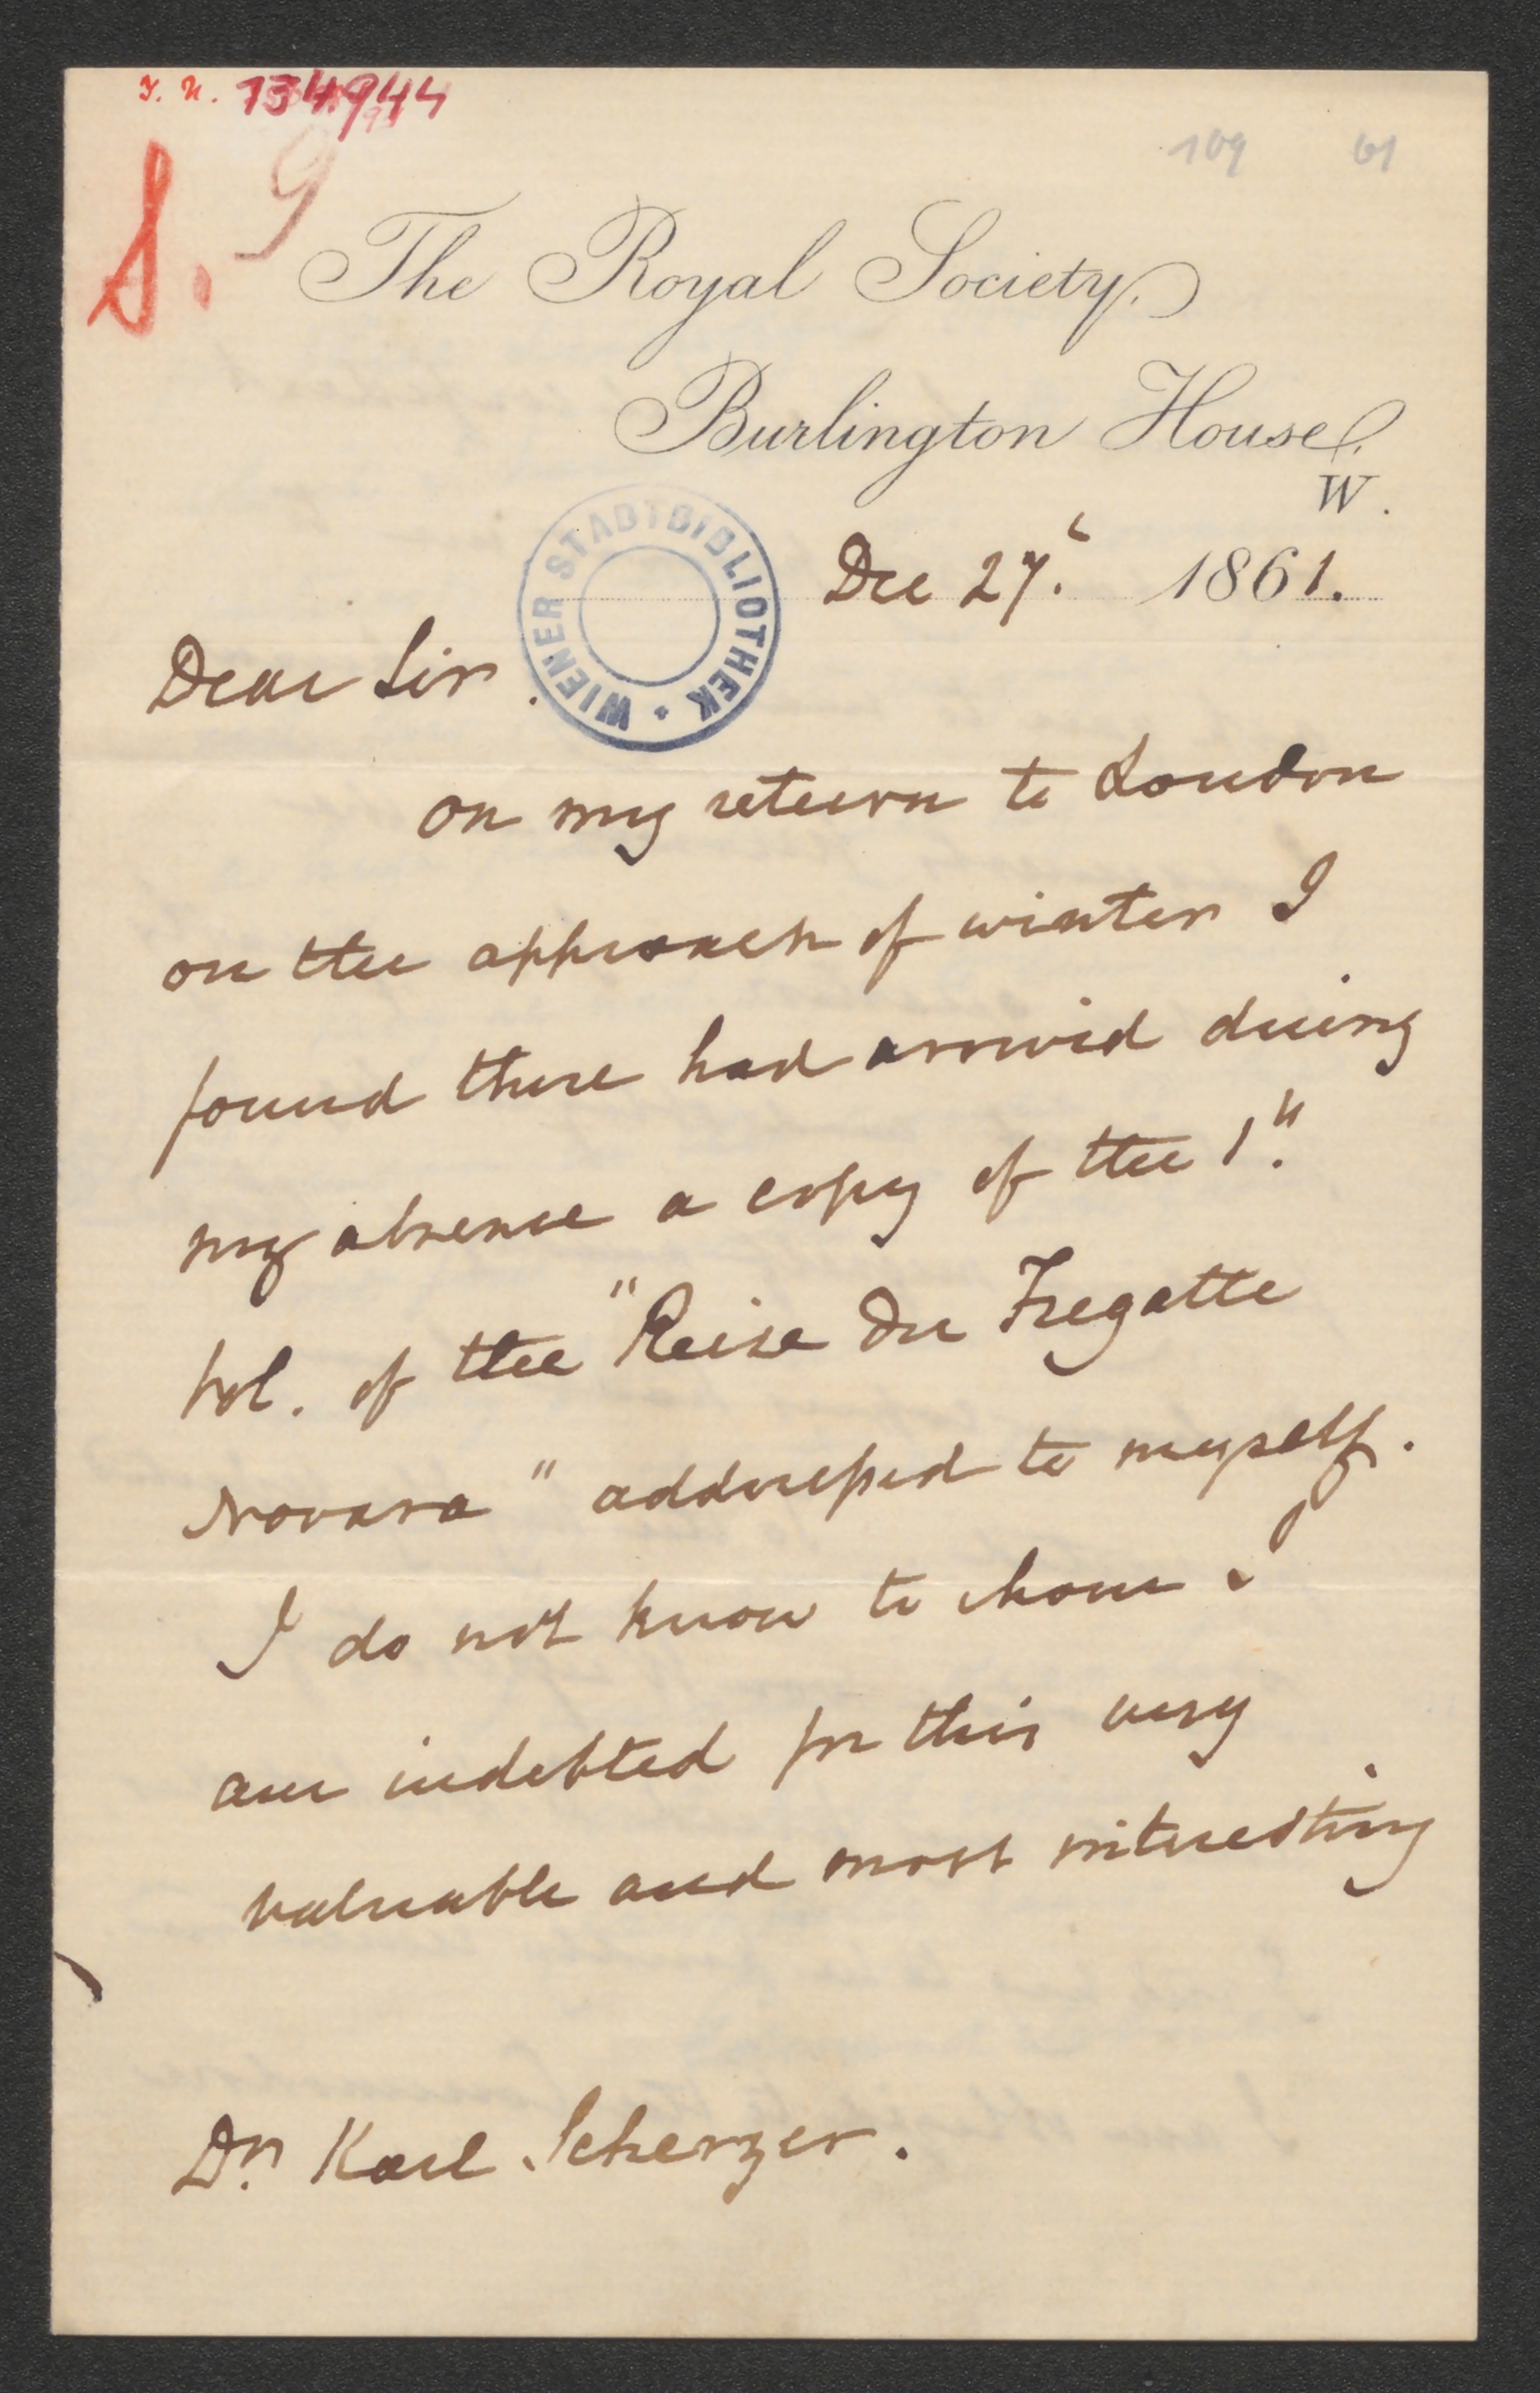 I. N. 134944
109 61
S. 9
The Royal Society,
Burlington House,
W.
WIENER STADTBIBLIOTHEK
Dec 27. 1861.
Dear Sir
on my return to London
on the approach of winter I
found there had arrived during
my absence a copy of the 1st
Vol. of the "Reise der Fregatte
Novara" addressed to myself.
I do not know to whom I
am indebted for this very
valuable and most interesting
Dr. Karl Scherzer.